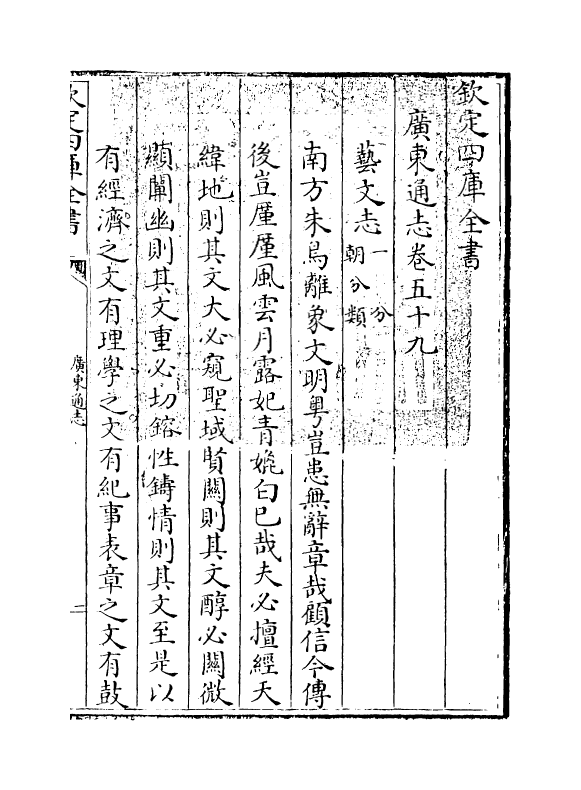 欽定四庫全書
廣東通志卷五十九
藝文志一分
朝分類
南方朱鳥離象文明粤豈患無辭章哉顧信今傳
後豈厪厪風雲月露妃青媲白已哉夫必擅經天
緯地則其文大必窺聖域賢關則其文醇必闡微
顯闡幽則其文重必切鎔性鑄情則其文至是以
有經濟之文有理學之文有紀事表章之文有鼓
欽定四庫全書
廣東通志